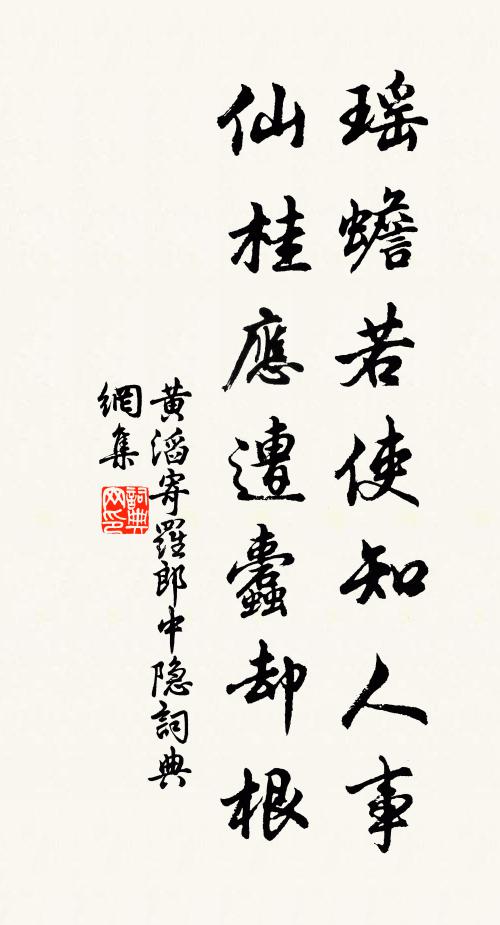 瑶蟾若使知人事
仙桂應遭蠹却根
黄滔寄羅郎中隐詞典
網集
詞典
网印